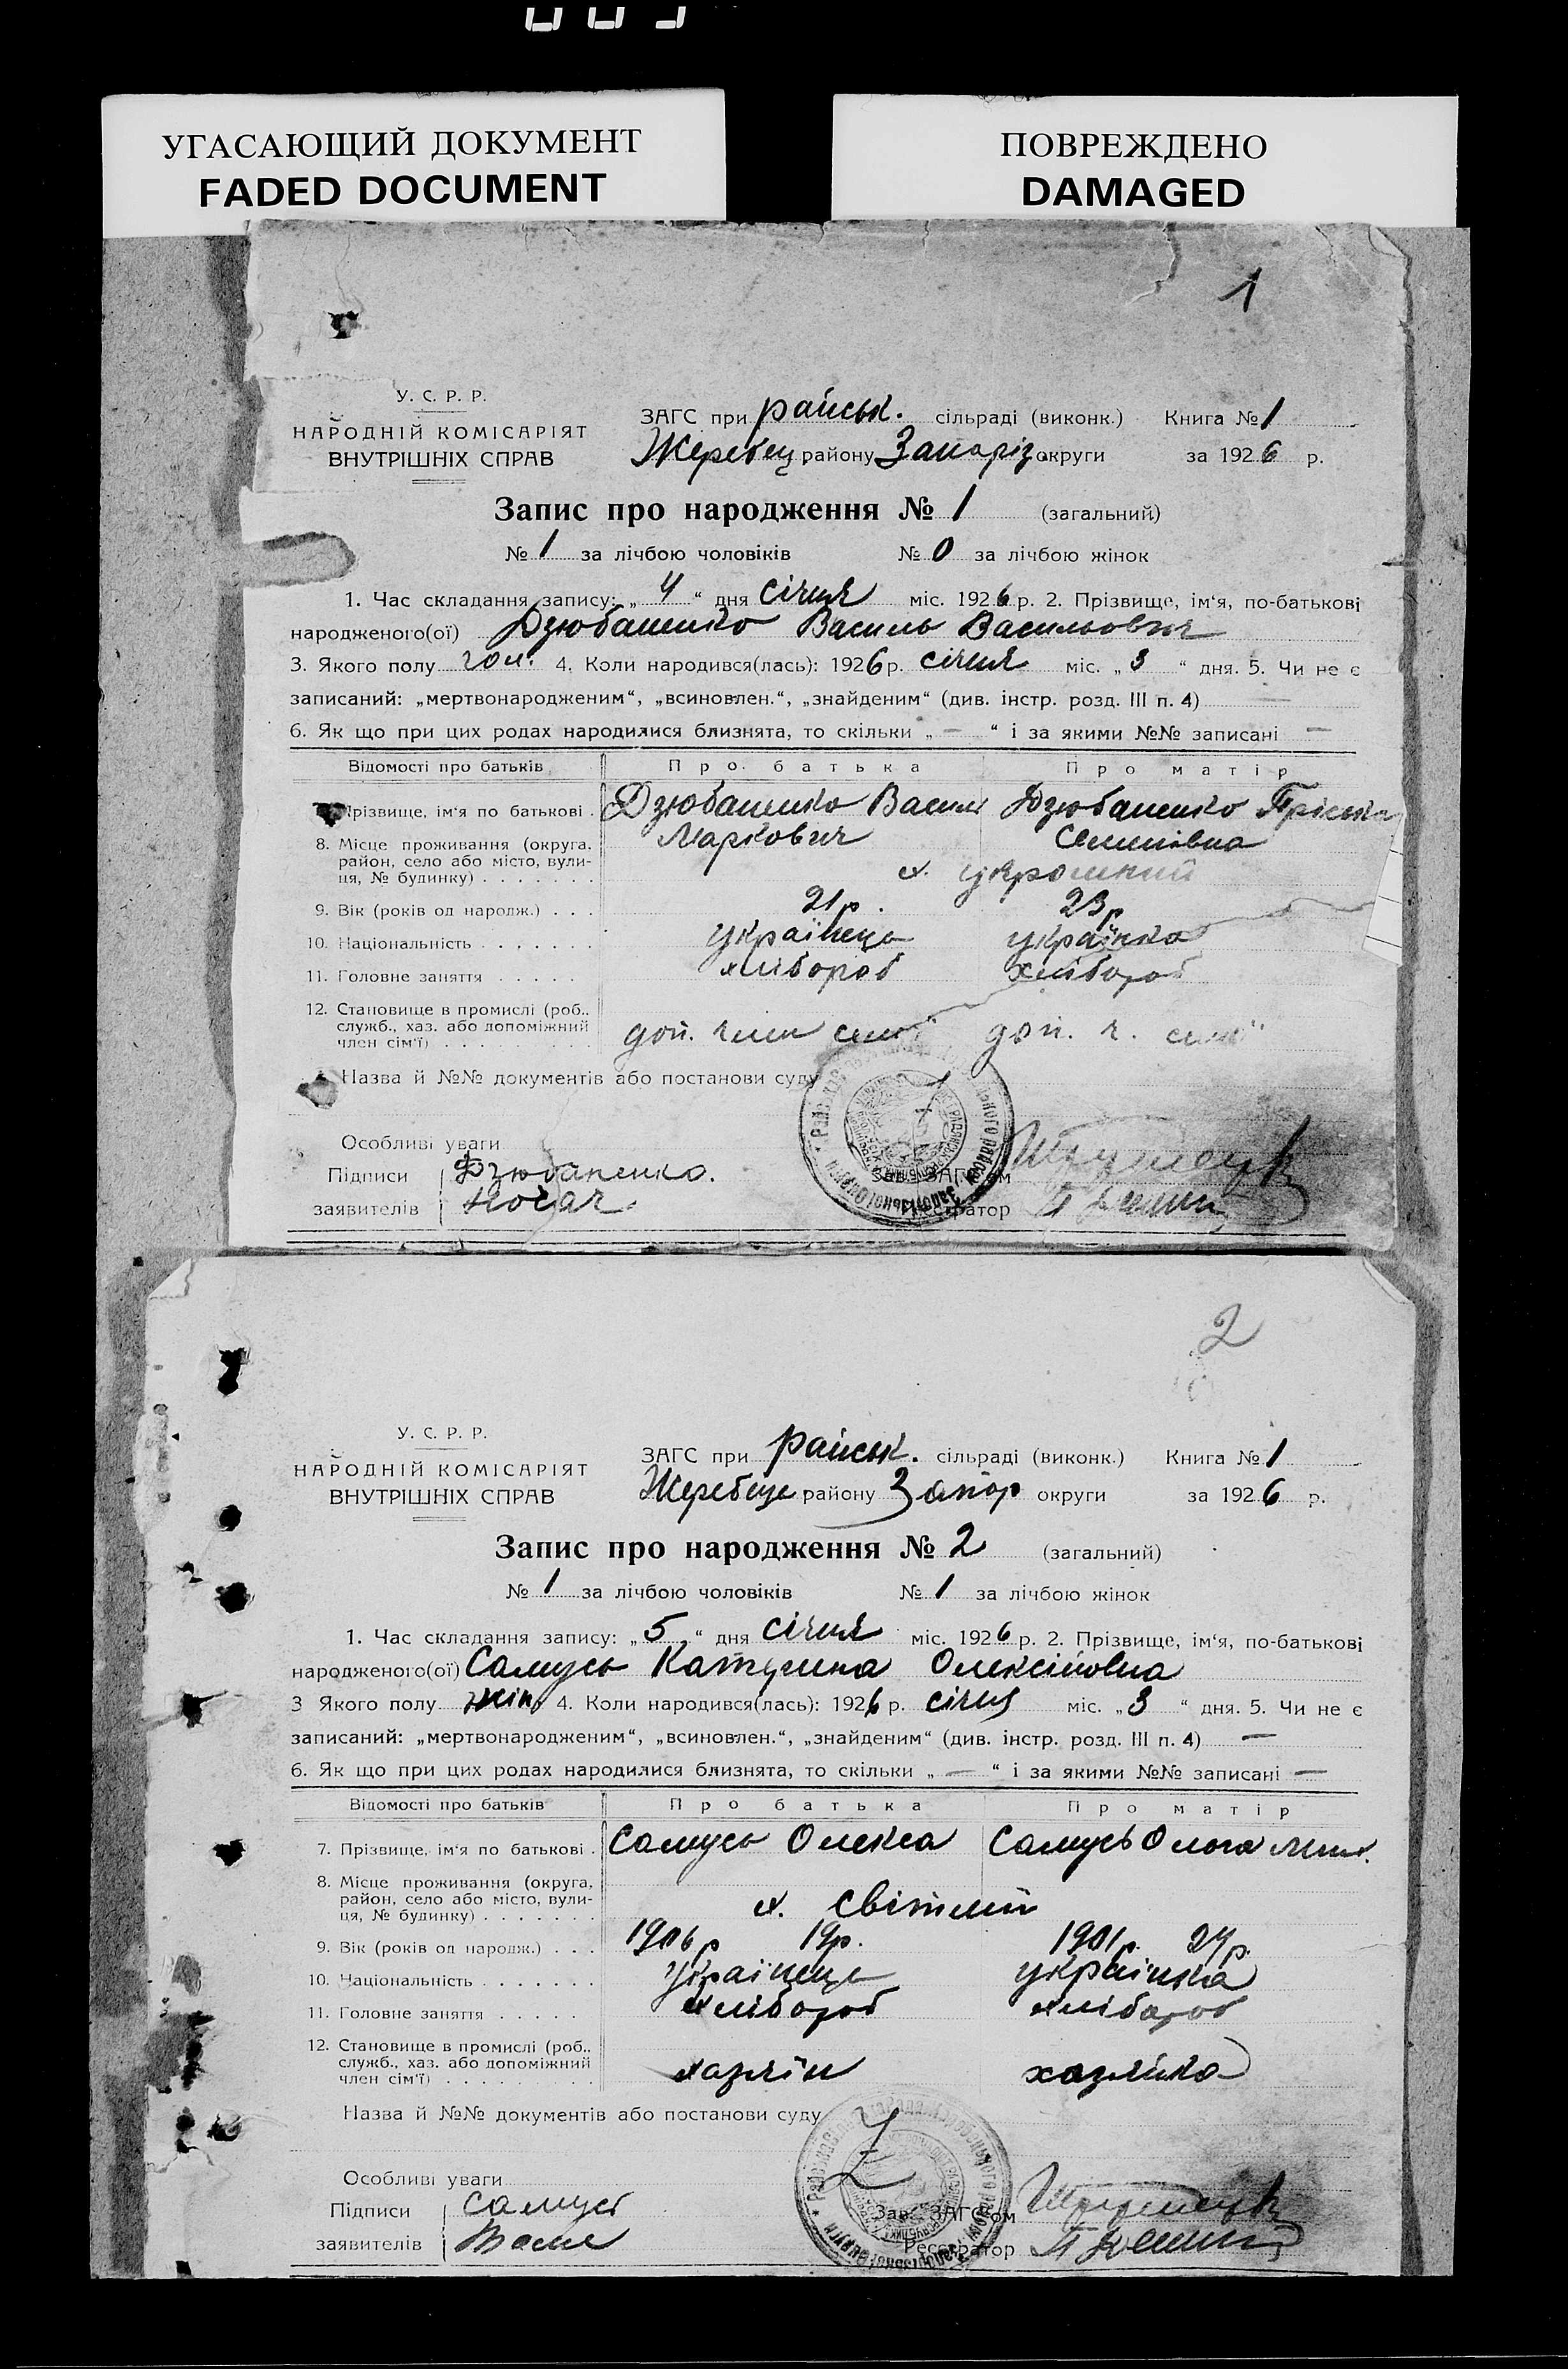 УГАСАЮЩИЙ ДОКУМЕНТ
FADED DOCUMENT
ПОВРЕЖДЕНО
DAMAGED
1
У. С. Р. Р.
НАРОДНІЙ КОМІСАРІЯТ
ВНУТРІШНІХ СПРАВ
ЗАГС при райськ. сільраді (виконк.) Книга № 1
Жеребец. району Запоріз. округи за 1926 р.
Запис про народження № 1 (загальний)
№ 1 за лічбою чоловіків № 0 за лічбою жінок
1. Час складання запису: „ 4 “ дня січня міс. 1926 р. 2. Прізвище, ім‘я, по-батькові
народженого(ої) Дзюбаненко Василь Васильович
3. Якого полу чол. 4. Коли народився(лась): 1926 р. січня міс. „ 3 “ дня. 5. Чи не є
записаний: „мертвонародженим“, „всиновлен.“, „знайденим“ (див. інстр. розд. III п. 4) —
6. Як що при цих родах народилися близнята, то скільки „ — “ і за якими №№ записані —
Відомості про батьків Про батька Про матір
Прізвище, ім‘я по батькові . Дзюбаненко Василь Дзюбаненко Пріська
Маркович Семенівна
8. Місце проживання (округа,
район, село або місто, вули-
ця, № будинку) . . . . . . . х. укромний
9. Вік (років од народж.) . . . 21 р. 23 р
10. Національність . . . . . . . українець українка
11. Головне заняття . . . . . хлібороб хлібороб
12. Становище в промислі (роб.,
служб., хаз. або допоміжний
член сім‘ї) . . . . . . . . . доп. член сем'ї доп. ч. сем'ї
Назва й №№ документів або постанови суду
Особливі уваги
Підписи Дзюбаненко.
заявителів Зав. ЗАГС‘ом
Реєстратор
2
У. С. Р. Р.
НАРОДНІЙ КОМІСАРІЯТ
ВНУТРІШНІХ СПРАВ
ЗАГС при райськ. сільраді (виконк.) Книга № 1
Жеребеце району Запор округи за 1926 р.
Запис про народження № 2 (загальний)
№ 1 за лічбою чоловіків № 1 за лічбою жінок
1. Час складання запису: „ 5 “ дня січня міс. 1926 р. 2. Прізвище, ім‘я, по-батькові
народженого(ої) Самусь Катерина Олексійовна
3 Якого полу жін. 4. Коли народився(лась): 1926 р. січня міс. „ 3 “ дня. 5. Чи не є
записаний: „мертвонародженим“, „всиновлен.“, „знайденим“ (див. інстр. розд. III п. 4) —
6. Як що при цих родах народилися близнята, то скільки „ — “ і за якими №№ записані —
Відомості про батьків Про батька Про матір
7. Прізвище, ім‘я по батькові . Самусь Олекса Самусь Ольга Мих.
8. Місце проживання (округа,
район, село або місто, вули-
ця, № будинку) . . . . . . . х. світлий
9. Вік (років од народж.) . . . 1906 р 19 р. 1901 р. 24 р.
10. Національність . . . . . . . українець українка
11. Головне заняття . . . . . хлібороб хлібороб
12. Становище в промислі (роб.,
служб., хаз. або допоміжний
член сім‘ї) . . . . . . . . . хазяїн хазяйка
Назва й №№ документів або постанови суду
Особливі уваги
Підписи Самусь
заявителів Зав. ЗАГС‘ом
Реєстратор